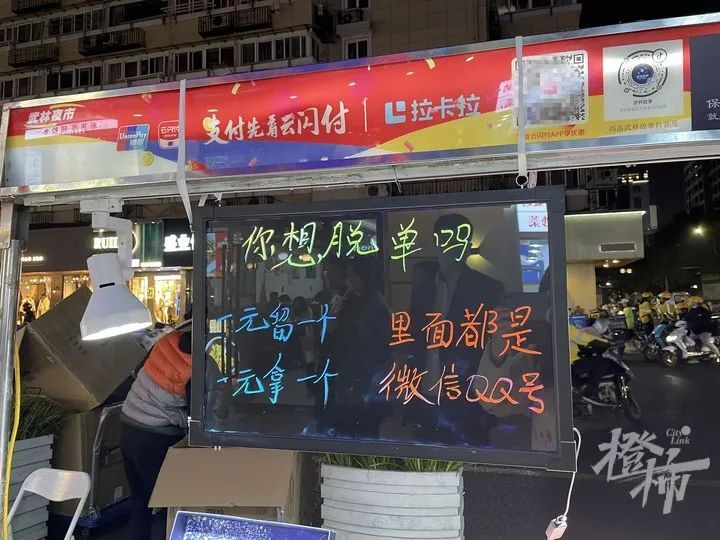 武林夜市
UnionPay
银联
云闪付
支付先看云闪付
拉卡拉
云闪付APP享优惠
武林故事
你想脱单吗
一元留一个
一元拿一个
里面都是
微信QQ号
City Link
橙柿